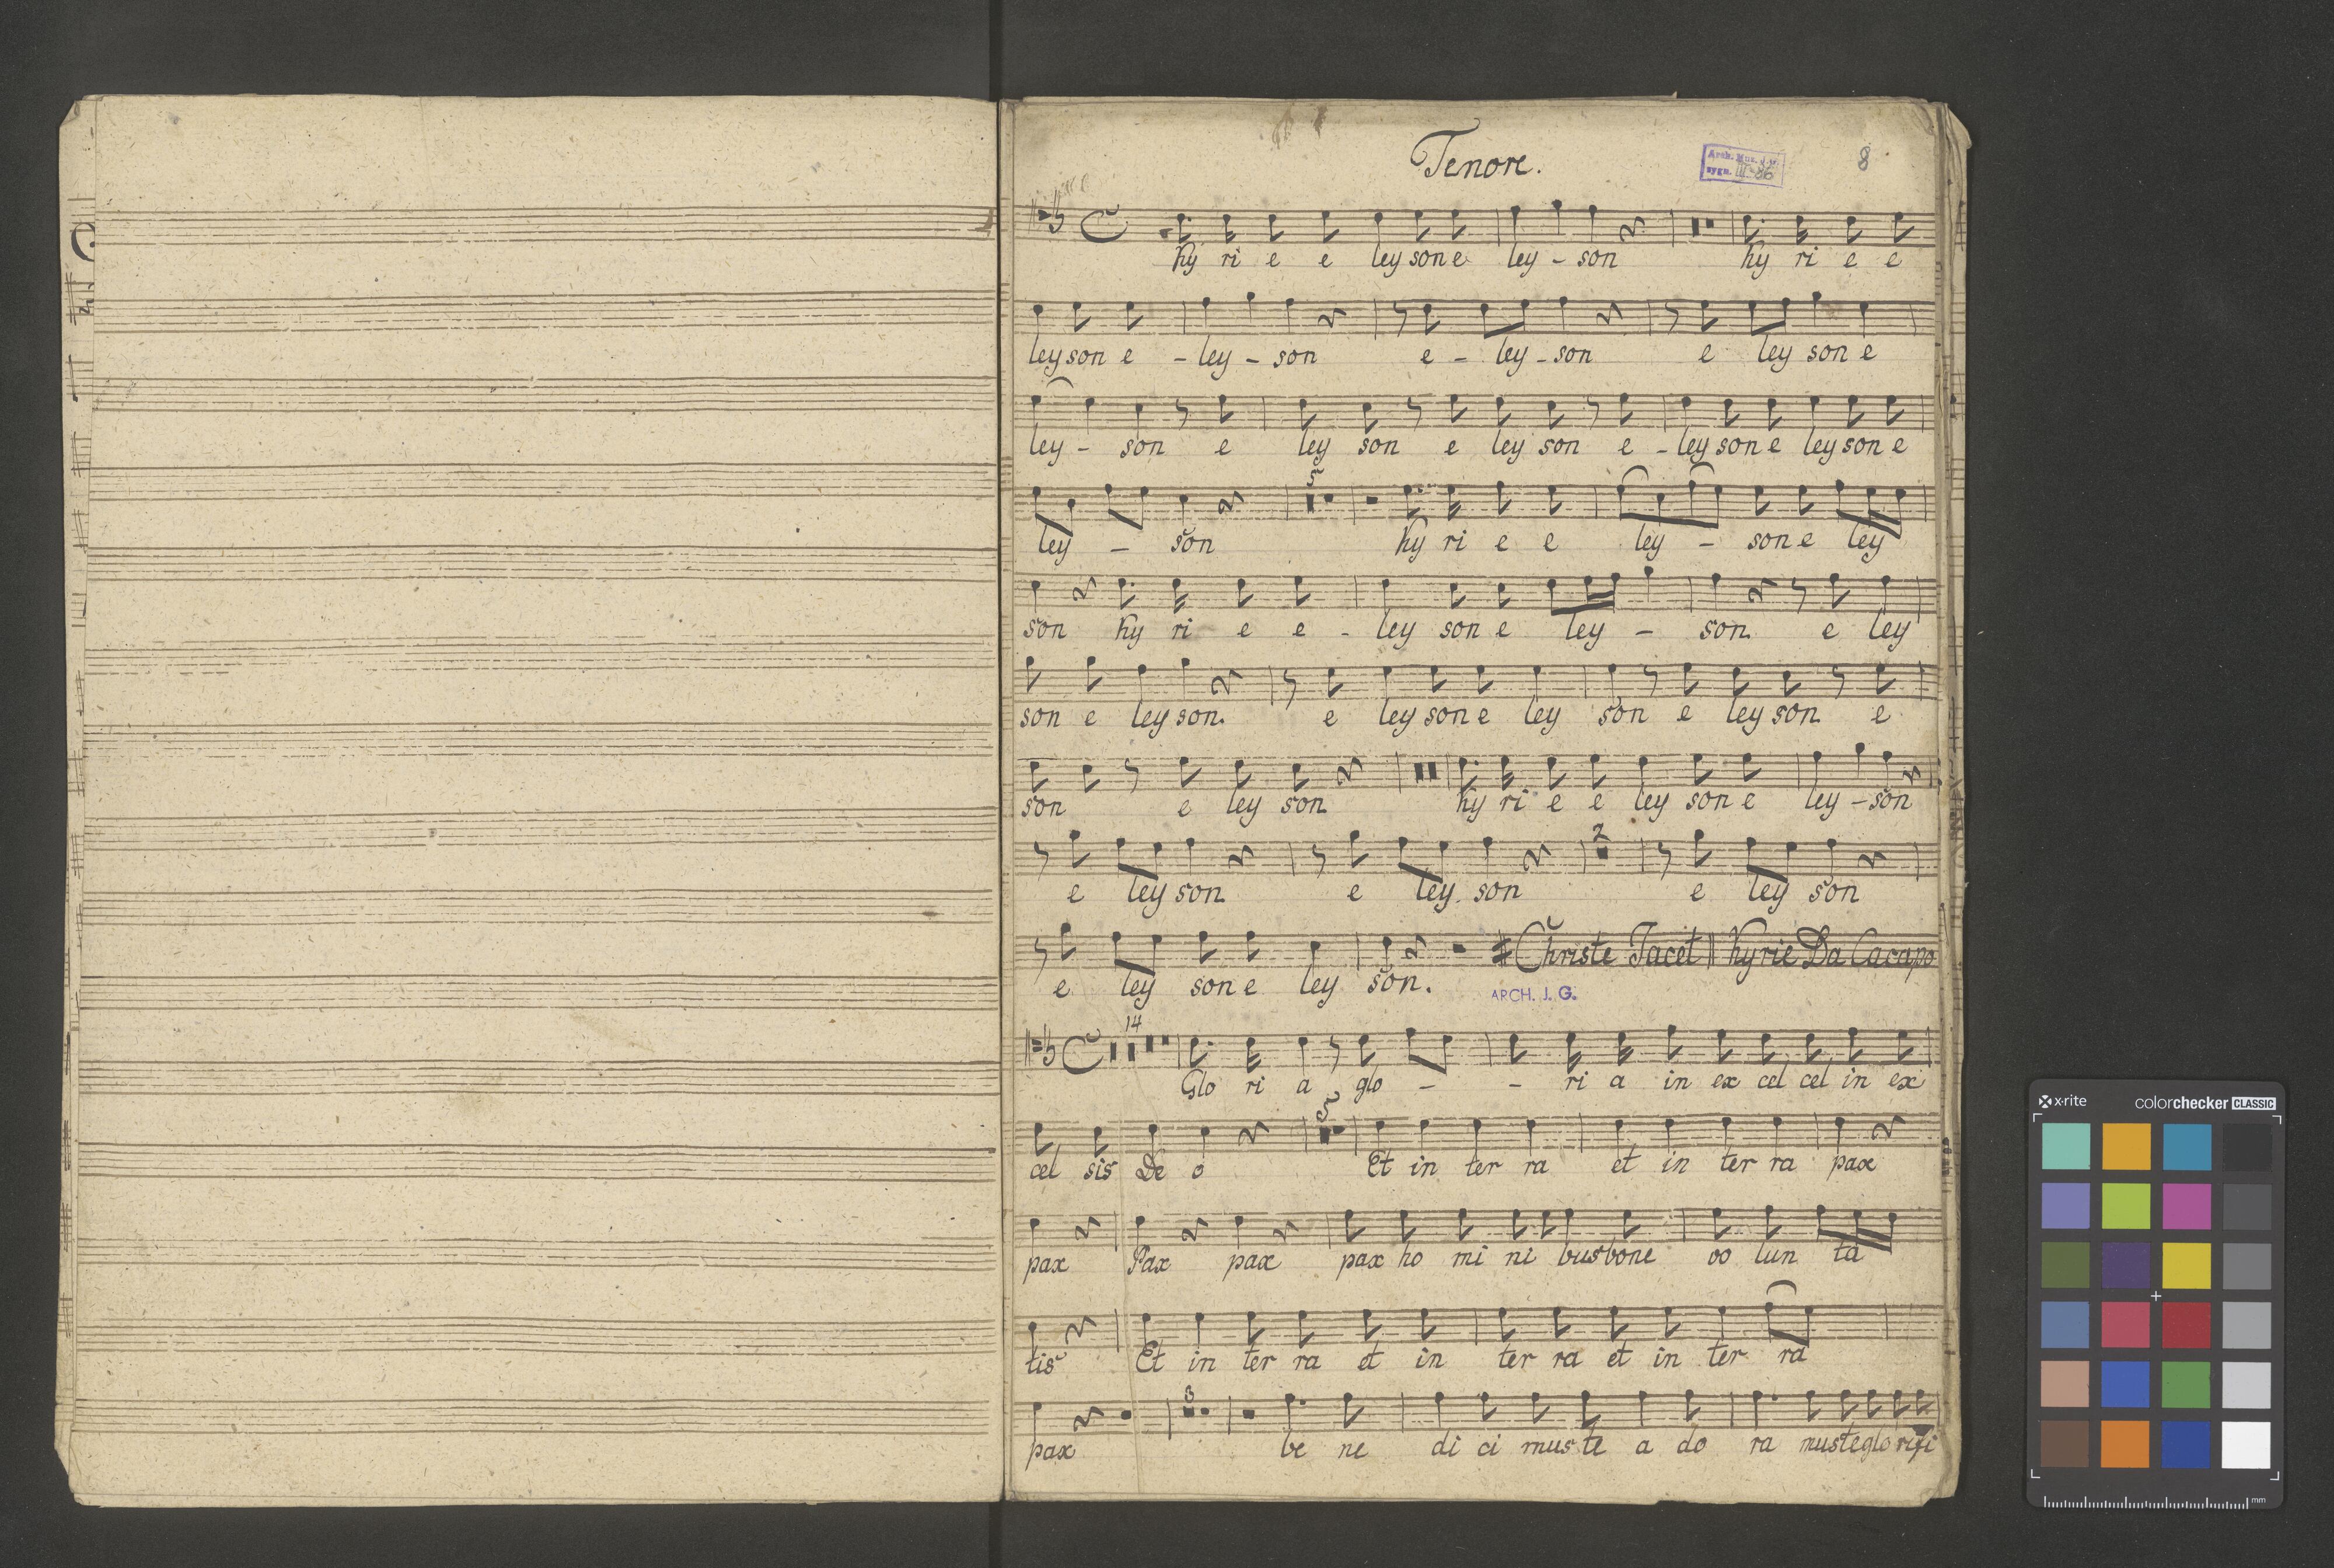 Tenore.
Arch. Muz. J. G.
sygn. III-86
8
ky ri e e ley son e ley - son ky ri e e
ley son e - ley - son e - ley - son e ley son e
ley - son e ley son e ley son e - ley son e ley son e
5
ley - son ky ri e e ley - son e ley
son ky ri e e - ley son e ley - son. e ley
son e ley son. e ley son e ley son e ley son e
son e ley son ky ri e e ley son e ley - son
2
e ley son e ley. son e ley son
Christe Tacet || Kyrie Da Cacapo
e ley son e ley son.
ARCH. J. G.
14
Glo ri a glo - - ri a in ex cel cel in ex
5
cel sis De o Et in ter ra et in ter ra pax
pax Pax pax pax ho mi ni bus bone vo lun ta
tis Et in ter ra et in ter ra et in ter ra
3
pax be ne di ci mus te a do ra mus te glo rifi
x-rite
colorchecker CLASSIC
mm